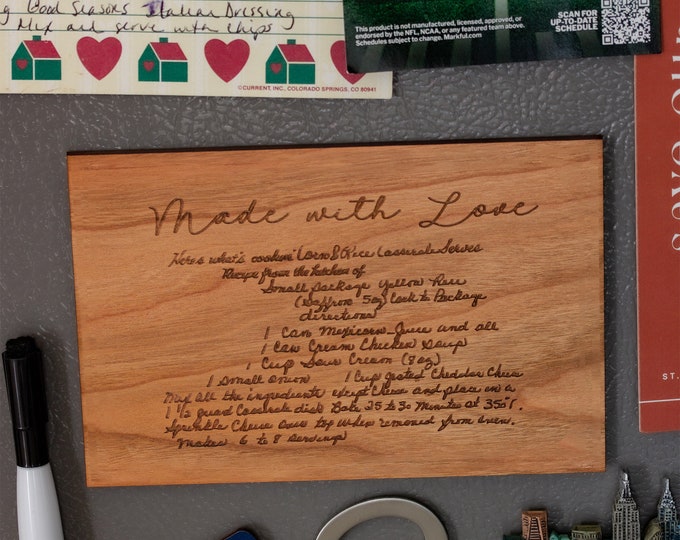 Good Seasons Italian Dressing
Mix and serve with chips
©CURRENT, INC., COLORADO SPRINGS, CO 80941
This product is not manufactured, licensed, approved, or
endorsed by the NFL, NCAA, or any featured team above.
Schedules subject to change. Markful.com
SCAN FOR
UP-TO-DATE
SCHEDULE
Made with Love
Here's what's cookin' Corn & Rice Casserole Serves
Recipe from the kitchen of
Small Package Yellow Rice
(Saffron 5oz) Cook to Package
directions
1 Can Mexicorn-Juice and all
1 Can Cream Chicken Soup
1 Cup Sour Cream (8 oz)
1 small onion 1 Cup grated Chedular Cheese
Mix all the ingredients except Cheese and place in a
1 1/2 quard Casserole dish Bake 25 to 30 Minutes at 350°.
Sprinkle Cheese over top when removed from oven.
Makes 6 to 8 servings
ST.